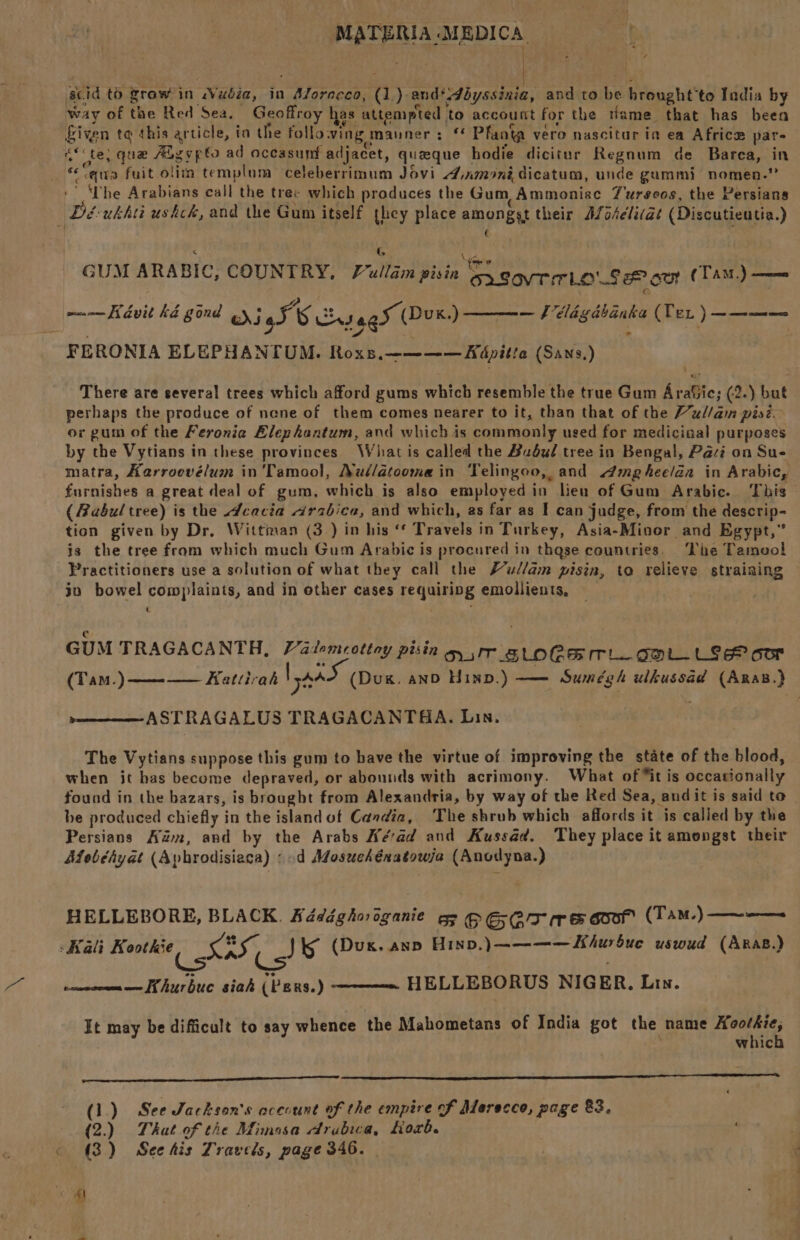 MATERIA MEDICA
said to grow in Nubia, in Morocco, (1.) and Abyssinia, and to be brought to India by
way of the Red Sea. Geoffroy has attempted to account for the name that has been
given to this article, in the following manner: “Planta vero nascitur in ea Africæ par-
“te, quæ Ægypto ad occasum adjacet, quæque hodie dicitur Regnum de Barca, in
“qua fuit olim templum celeberrimum Jovi Ammoni dicatum, unde gummi nomen.”
The Arabians call the tree which produces the Gum Ammoniac Turseos, the Persians
Dé-ukhti ushck, and the Gum itself they place amongst their Mohélitát (Discutientia.)
GUM ARABIC, COUNTRY, Vullám pisin (Tam.) ——
——Kávit ká gónd کویت کا گوند (Duk.) ———— Vélágábánka (Tel.) ————
FERONIA ELEPHANTUM. Roxb.————Kápitta (Sans.)
There are several trees which afford gums which resemble the true Gum Arabic; (2.) but
perhaps the produce of none of them comes nearer to it, than that of the Vullám pisi.
or gum of the Feronia Elephantum, and which is commonly used for medicinal purposes
by the Vytians in these provinces. What is called the Babul tree in Bengal, Pári on Su-
matra, Karroovélum in Tamool, Nullátooma in Telingoo, and Amgheelán in Arabic,
furnishes a great deal of gum, which is also employed in lieu of Gum Arabic. This
(Babul tree) is the Acacia Arabica, and which, as far as I can judge, from the descrip-
tion given by Dr. Wittman (3.) in his “Travels in Turkey, Asia-Minor and Egypt,”
is the tree from which much Gum Arabic is procured in those countries. The Tamool
Practitioners use a solution of what they call the Vullám pisin, to relieve straining
in bowel complaints, and in other cases requiring emollients.
GUM TRAGACANTH, Vádomcottay pisin
(Tam.)———— Kattirah کتیرا (Duk. and Hind.) —— Sumégh ulkussád (Arab.)
————ASTRAGALUS TRAGACANTHA. Lin.
The Vytians suppose this gum to have the virtue of improving the state of the blood,
when it has become depraved, or abounds with acrimony. What of it is occasionally
found in the bazars, is brought from Alexandria, by way of the Red Sea, and it is said to
be produced chiefly in the island of Candia. The shrub which affords it is called by the
Persians Kám, and by the Arabs Kétád and Kussád. They place it amongst their
Mobéhyát (Aphrodisiaca) and Mosuchénatowja (Anodyna.)
HELLEBORE, BLACK. Kádághoróganie (Tam.)————
Káli Koothie کالی کٹکی (Duk. and Hind.)————Khurbuc uswud (Arab.)
————Khurbuc siah (Pers.) ———— HELLEBORUS NIGER. Lin.
It may be difficult to say whence the Mahometans of India got the name Koothie,
which
(1.) See Jackson's account of the empire of Morocco, page 83.
(2.) That of the Mimosa Arabica, Roxb.
(3.) See his Travels, page 346.